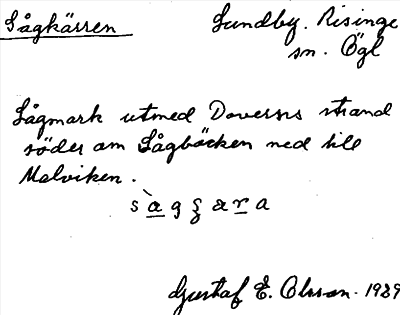 Sågkärren
Lundby. Risinge
sn. Ögl
Lågmark utmed Doverns strand
söder om Sågbäcken ned till
Malviken.
Gustaf E. Olsson. 1929